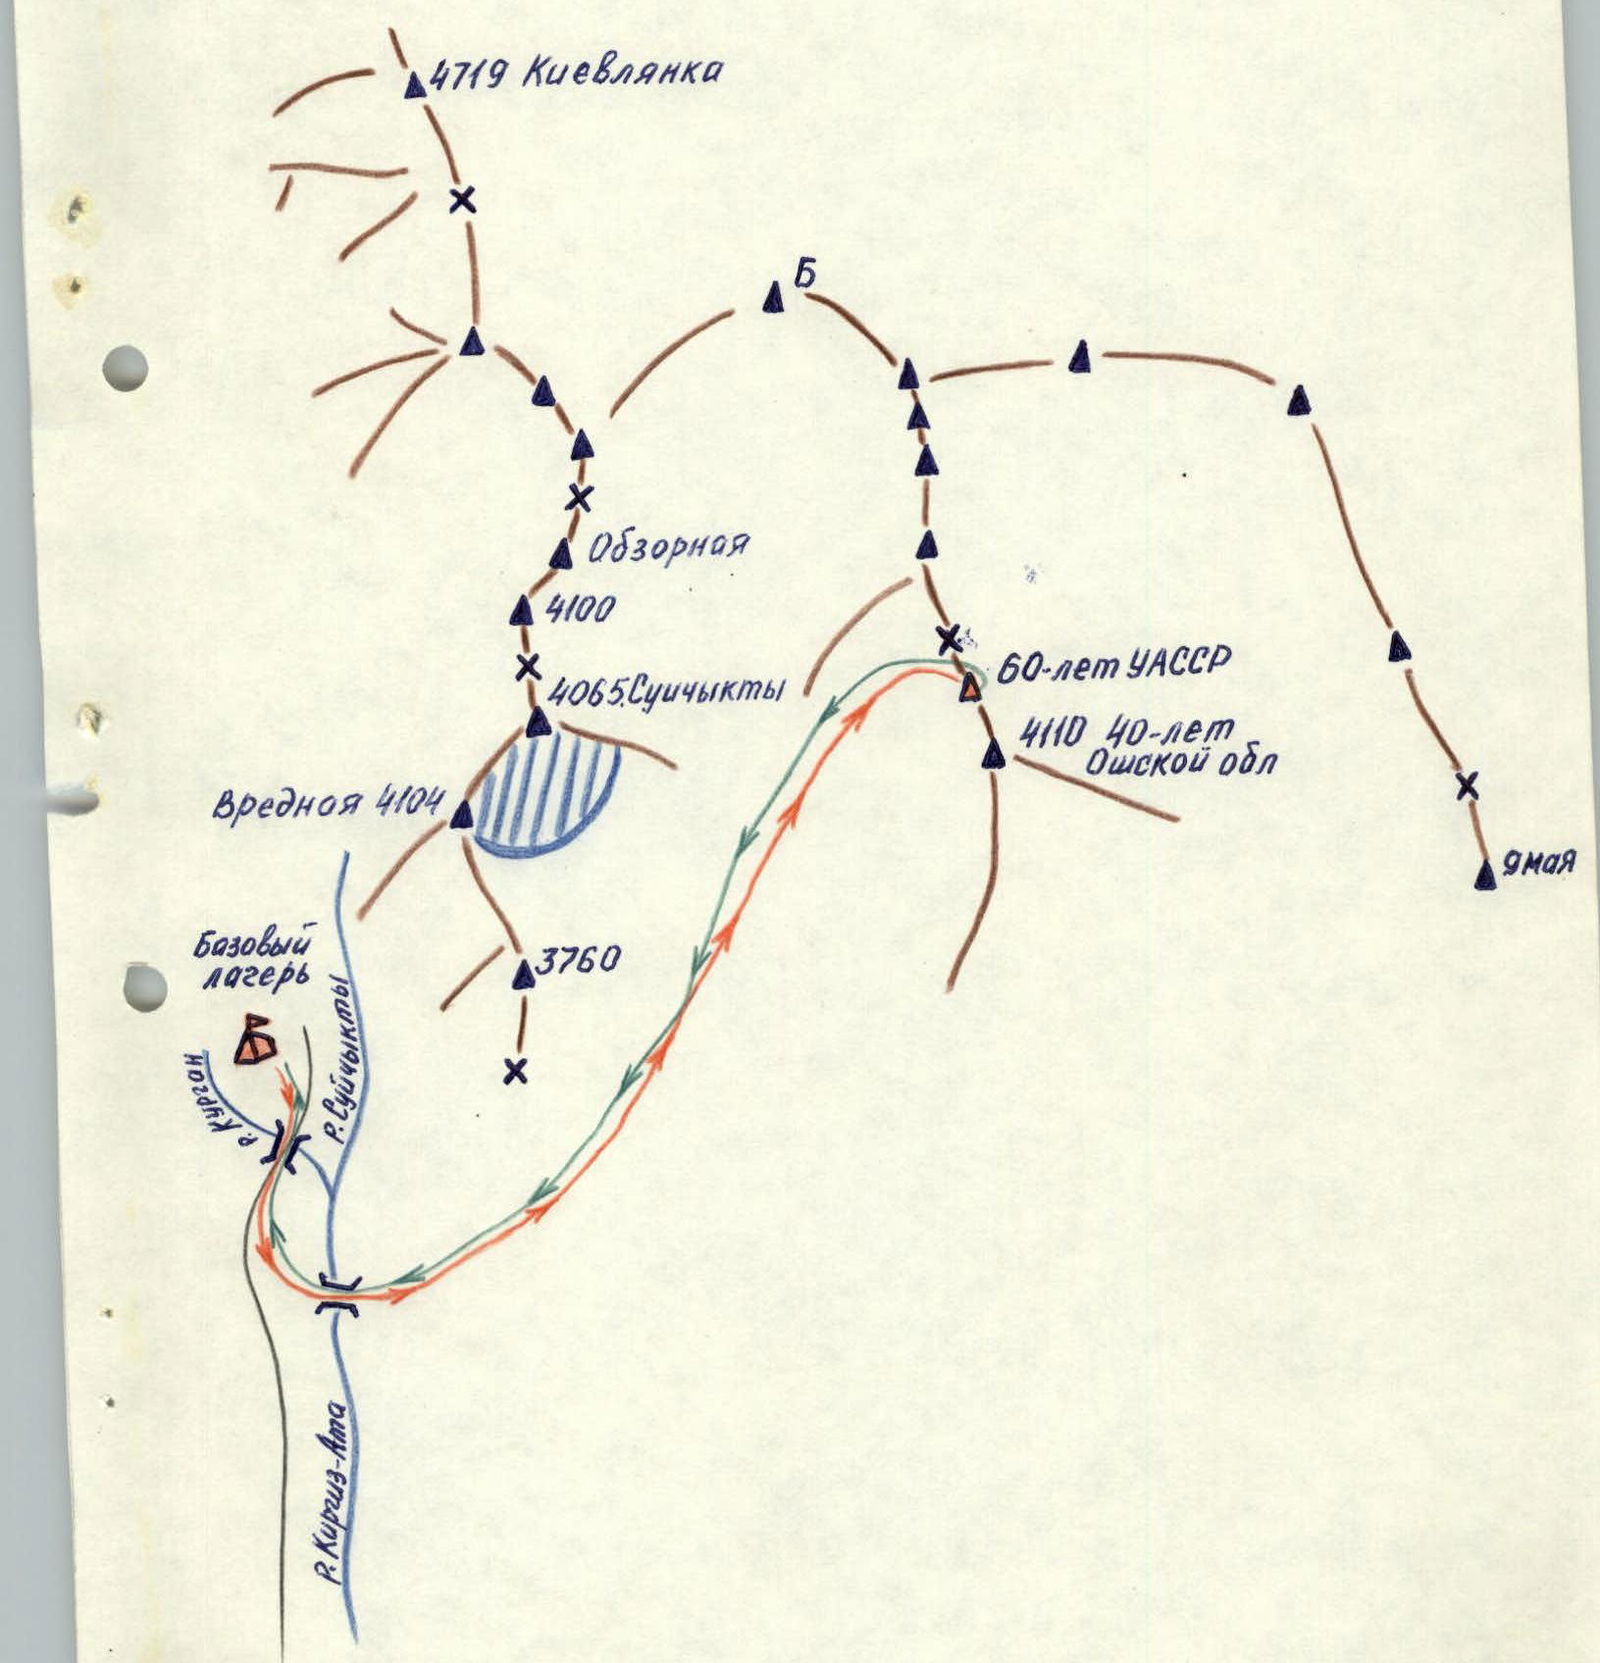 4719 Киевлянка
Б
Обзорная
4100
4065.Суйчыкты
60-лет УАССР
4110 40-лет
Ошской обл
Вредная 4104
9 мая
Базовый
лагерь
3760
Р.Суйчыкты
р. Курган
Р.Киргиз-Ата